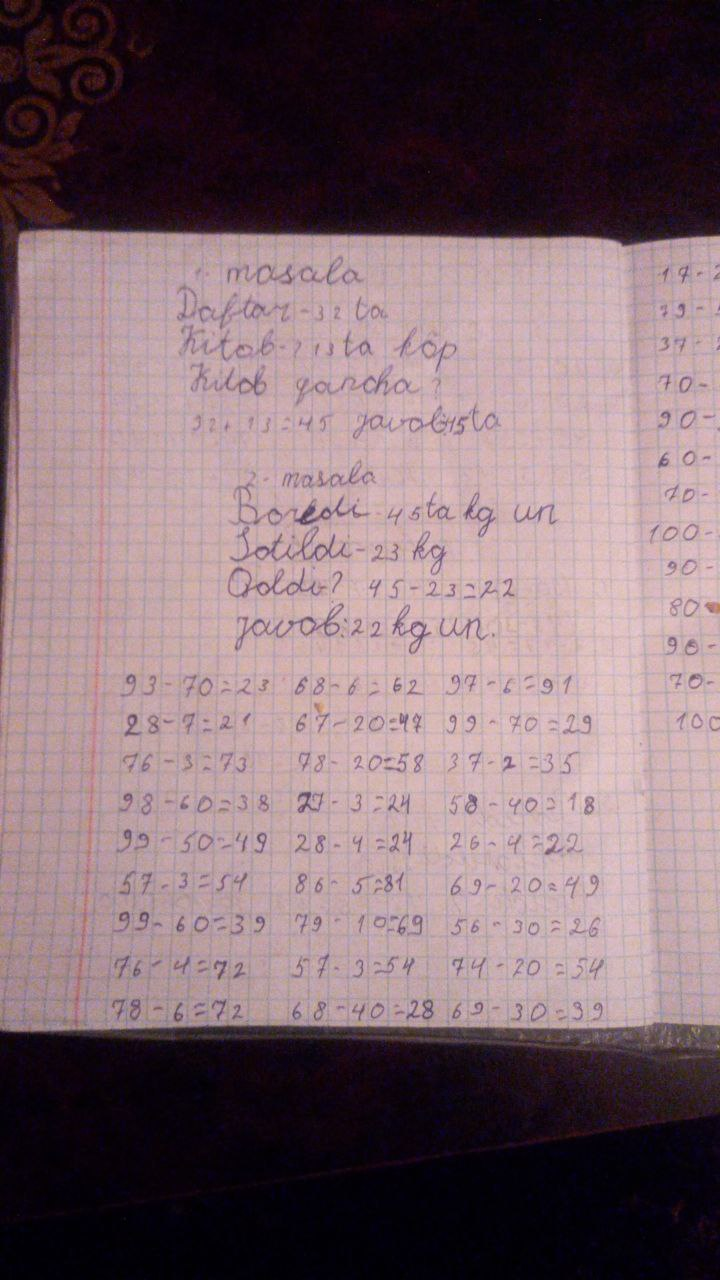 1. masala
Daftar - 32 ta
Kitob - ? 13 ta köp
Kitob qancha?
32 + 13 = 45 javob: 45 ta
2 - masala
Boredi - 45 ta kg un
Sotildi - 23 kg
Qoldi - ? 45 - 23 = 22
javob: 22 kg un.
93 - 70 = 23 68 - 6 = 62 97 - 6 = 91
28 - 7 = 21 67 - 20 = 47 99 - 70 = 29
76 - 3 = 73 78 - 20 = 58 37 - 2 = 35
98 - 60 = 38 27 - 3 = 24 58 - 40 = 18
99 - 50 = 49 28 - 4 = 24 26 - 4 = 22
57 - 3 = 54 86 - 5 = 81 69 - 20 = 49
99 - 60 = 39 79 - 10 = 69 56 - 30 = 26
76 - 4 = 72 57 - 3 = 54 74 - 20 = 54
78 - 6 = 72 68 - 40 = 28 69 - 30 = 39
17 - 2
79 -
37 - 2
70 -
90 -
60 -
70 -
100 -
90 -
80
90 -
70 -
100